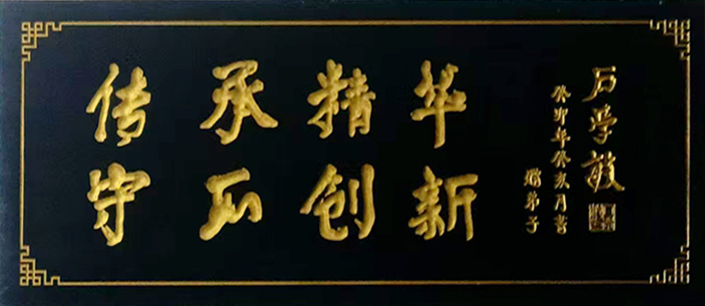 传承精华
守正创新
石学敏
癸卯年癸亥月书
弟子